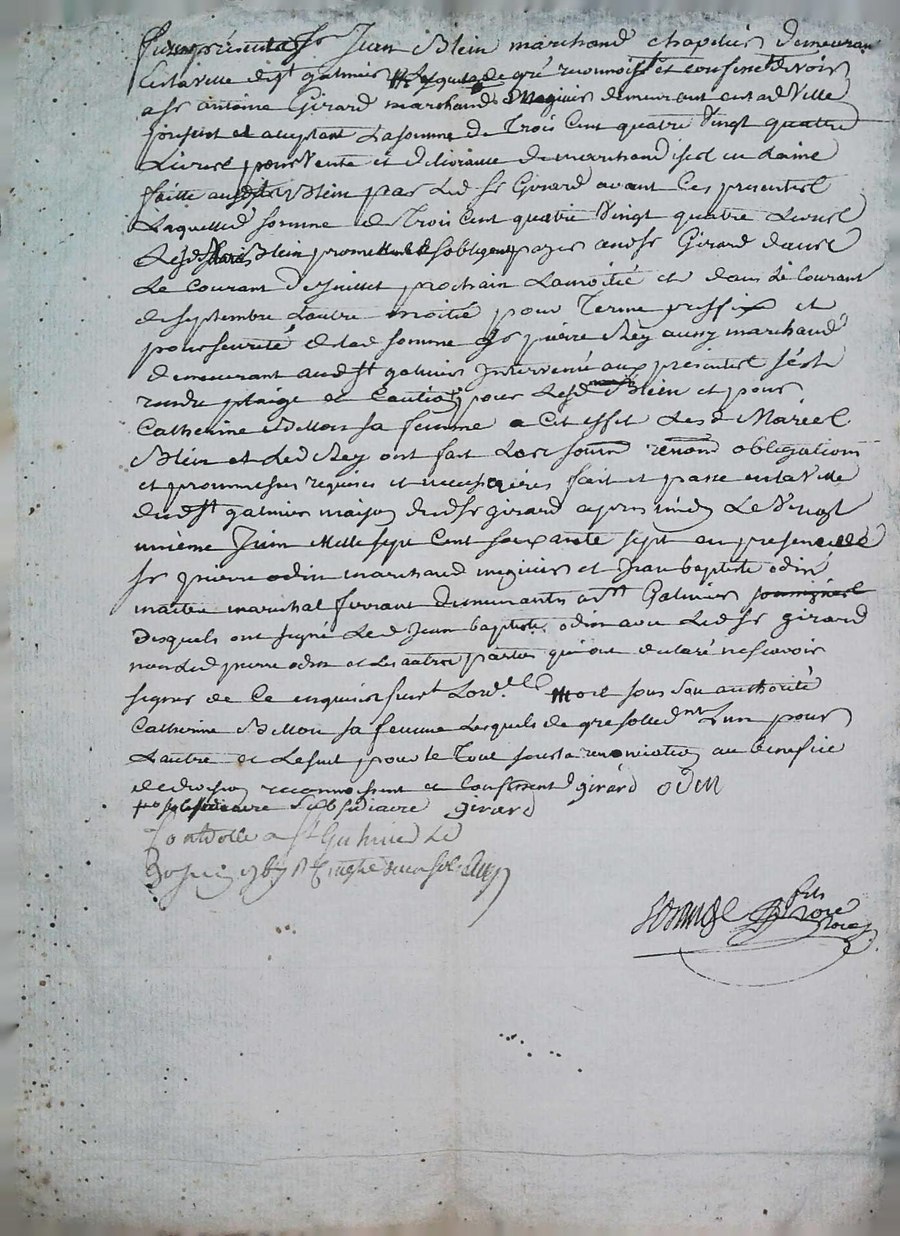 furent présents Sr Jean Blein marchand chapelier demeurant
en la ville de St galmier lesquels de gré reconnoissent et confessent devoir
a Sr antoine Girard marchand Megicier demeurant en lad Ville
present et acceptant La somme de Trois Cent quatre Vingt quatre
Livres pour Vente et delivrance de marchandises en Laine
faitte aud Sr Blein par Led Sr Girard avant Ces presentes
Laquelle somme de Trois Cent quatre Vingt quatre Livres
Lesd Blein promettent s'obligent payer aud Sr Girard dans
Le Courant de Juillet prochain La moitié et dans Le Courant
de septembre Lautre moitié pour Terme prefix et
pour seureté de lad somme Sr pierre Rey aussy marchand
demeurant aud St galmier Intervenu aux presentes s'est
rendu plaige et Caution pour Lesd Blein et pour
Catherine sa femme a Cet effet Lesd Mariés
Blein et Led Rey ont fait Les soum renon obligations
et promesses requises et necessaires fait et passé en la Ville
dud St galmier maison dud Sr girard apres midy Le Vingt
unième Juin Mille sept Cent soixante sept en presence de
Sr pierre odin marchand megicier et Jean baptiste odin
maitre marechal ferrant demeurants a St Galmier
Desquels ont signé Led Jean baptiste odin avec Led Sr girard
non Led pierre odin et Les autres parties qui ont declaré ne scavoir
signer de Ce enquis suivt Lord. et sous son authorité
Catherine sa femme Lesquels de gre solidt Lun pour
Lautre et Le seul pour le Tout sous la renonciation au benefice
de division reconnoissent et Confessent girard odin
subsidiaire girard
Controllé a St Galmier Le